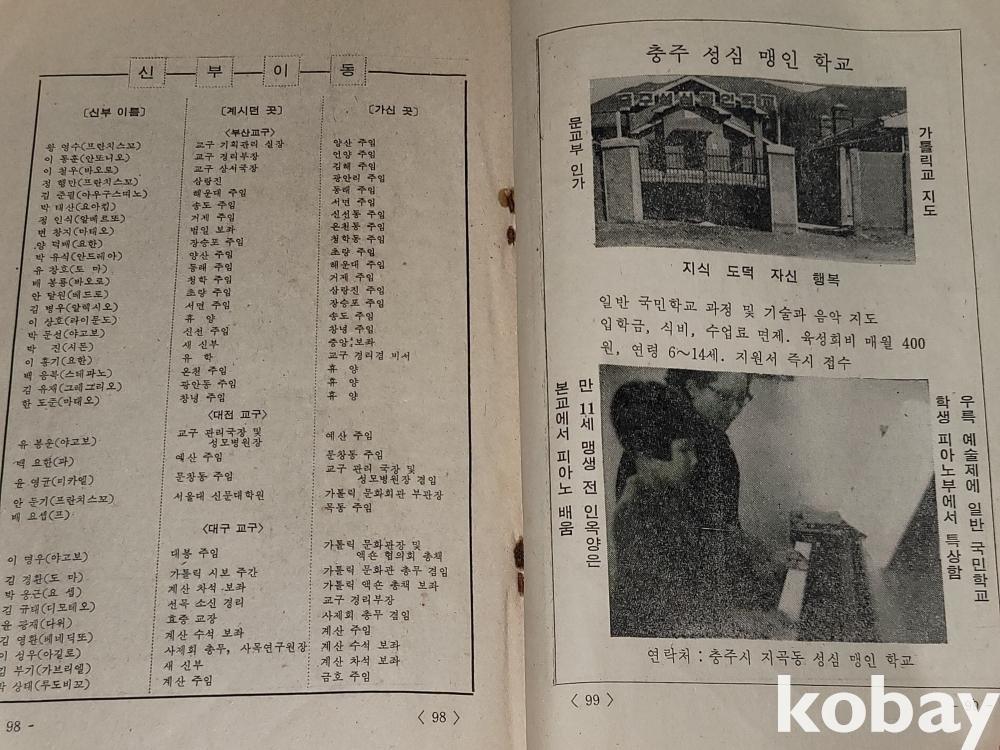 신 부 이 동
[신부 이름] [계시던 곳] [가신 곳]
〈부산교구〉
왕 영수(프란치스꼬) 교구 기획관리 실장 양산 주임
이 동훈(안또니오) 교구 경리부장 언양 주임
이 철우(바오로) 교구 상서국장 김해 주임
정 행만(프란치스꼬) 삼랑진 광안리 주임
김 준필(아우구스띠노) 해운대 주임 동래 주임
박 태산(요아킴) 송도 주임 서면 주임
정 인식(알베르또) 거제 주임 신선동 주임
변 창지(마태오) 범일 보좌 온천동 주임
양 덕배(요한) 장승포 주임 청학동 주임
박 유식(안드레아) 양산 주임 초량 주임
유 창호(도 마) 동래 주임 해운대 주임
배 봉룡(바오로) 청학 주임 거제 주임
안 달원(베드로) 초량 주임 삼랑진 주임
김 병우(알렉시오) 서면 주임 장승포 주임
이 상호(라이문도) 휴 양 송도 주임
박 문선(야고보) 신선 주임 창녕 주임
박 진(시돈) 새 신부 중앙 보좌
이 홍기(요한) 유 학 교구 경리겸 비서
백 응복(스테파노) 온천 주임 휴 양
김 유재(그레고리오) 광안동 주임 휴 양
한 도준(마태오) 창녕 주임 휴 양
〈대전 교구〉
유 봉운(야고보) 교구 관리국장 및 성모병원장 예산 주임
백 요한(파) 예산 주임 문창동 주임
윤 영균(미카엘) 문창동 주임 교구 관리 국장 및 성모병원장 겸임
안 둔기(프란치스꼬) 서울대 신문대학원 가톨릭 문화회관 부관장
배 요셉(프) 목동 주임
〈대구 교구〉
이 명우(야고보) 대봉 주임 가톨릭 문화관장 및 액숀 협의회 총책
김 경환(도 마) 가톨릭 시보 주간 가톨릭 문화관 총무 겸임
박 응근(요 셉) 계산 차석 보좌 가톨릭 액숀 총책 보좌
김 규태(디모테오) 선목 소신 경리 교구 경리부장
윤 광재(다위) 효중 교장 사제회 총무 겸임
김 영환(베네딕또) 계산 수석 보좌 계산 주임
이 성우(아길로) 사제회 총무, 사목연구원장 계산 수석 보좌
김 부기(가브리엘) 새 신부 계산 차석 보좌
상태(루도비꼬) 계산 주임 금호 주임
98 -
〈 98 〉
충주 성심 맹인 학교
문교부 인가
충주성심맹인학교
가톨릭교 지도
지식 도덕 자신 행복
일반 국민학교 과정 및 기술과 음악 지도
입학금, 식비, 수업료 면제. 육성회비 매월 400
원, 연령 6~14세. 지원서 즉시 접수
만 11세 맹생 전 인옥양은
본교에서 피아노 배움
우륵 예술제에 일반 국민학교
학생 피아노부에서 특상함
연락처 : 충주시 지곡동 성심 맹인 학교
〈 99 〉
- 99 -
kobay